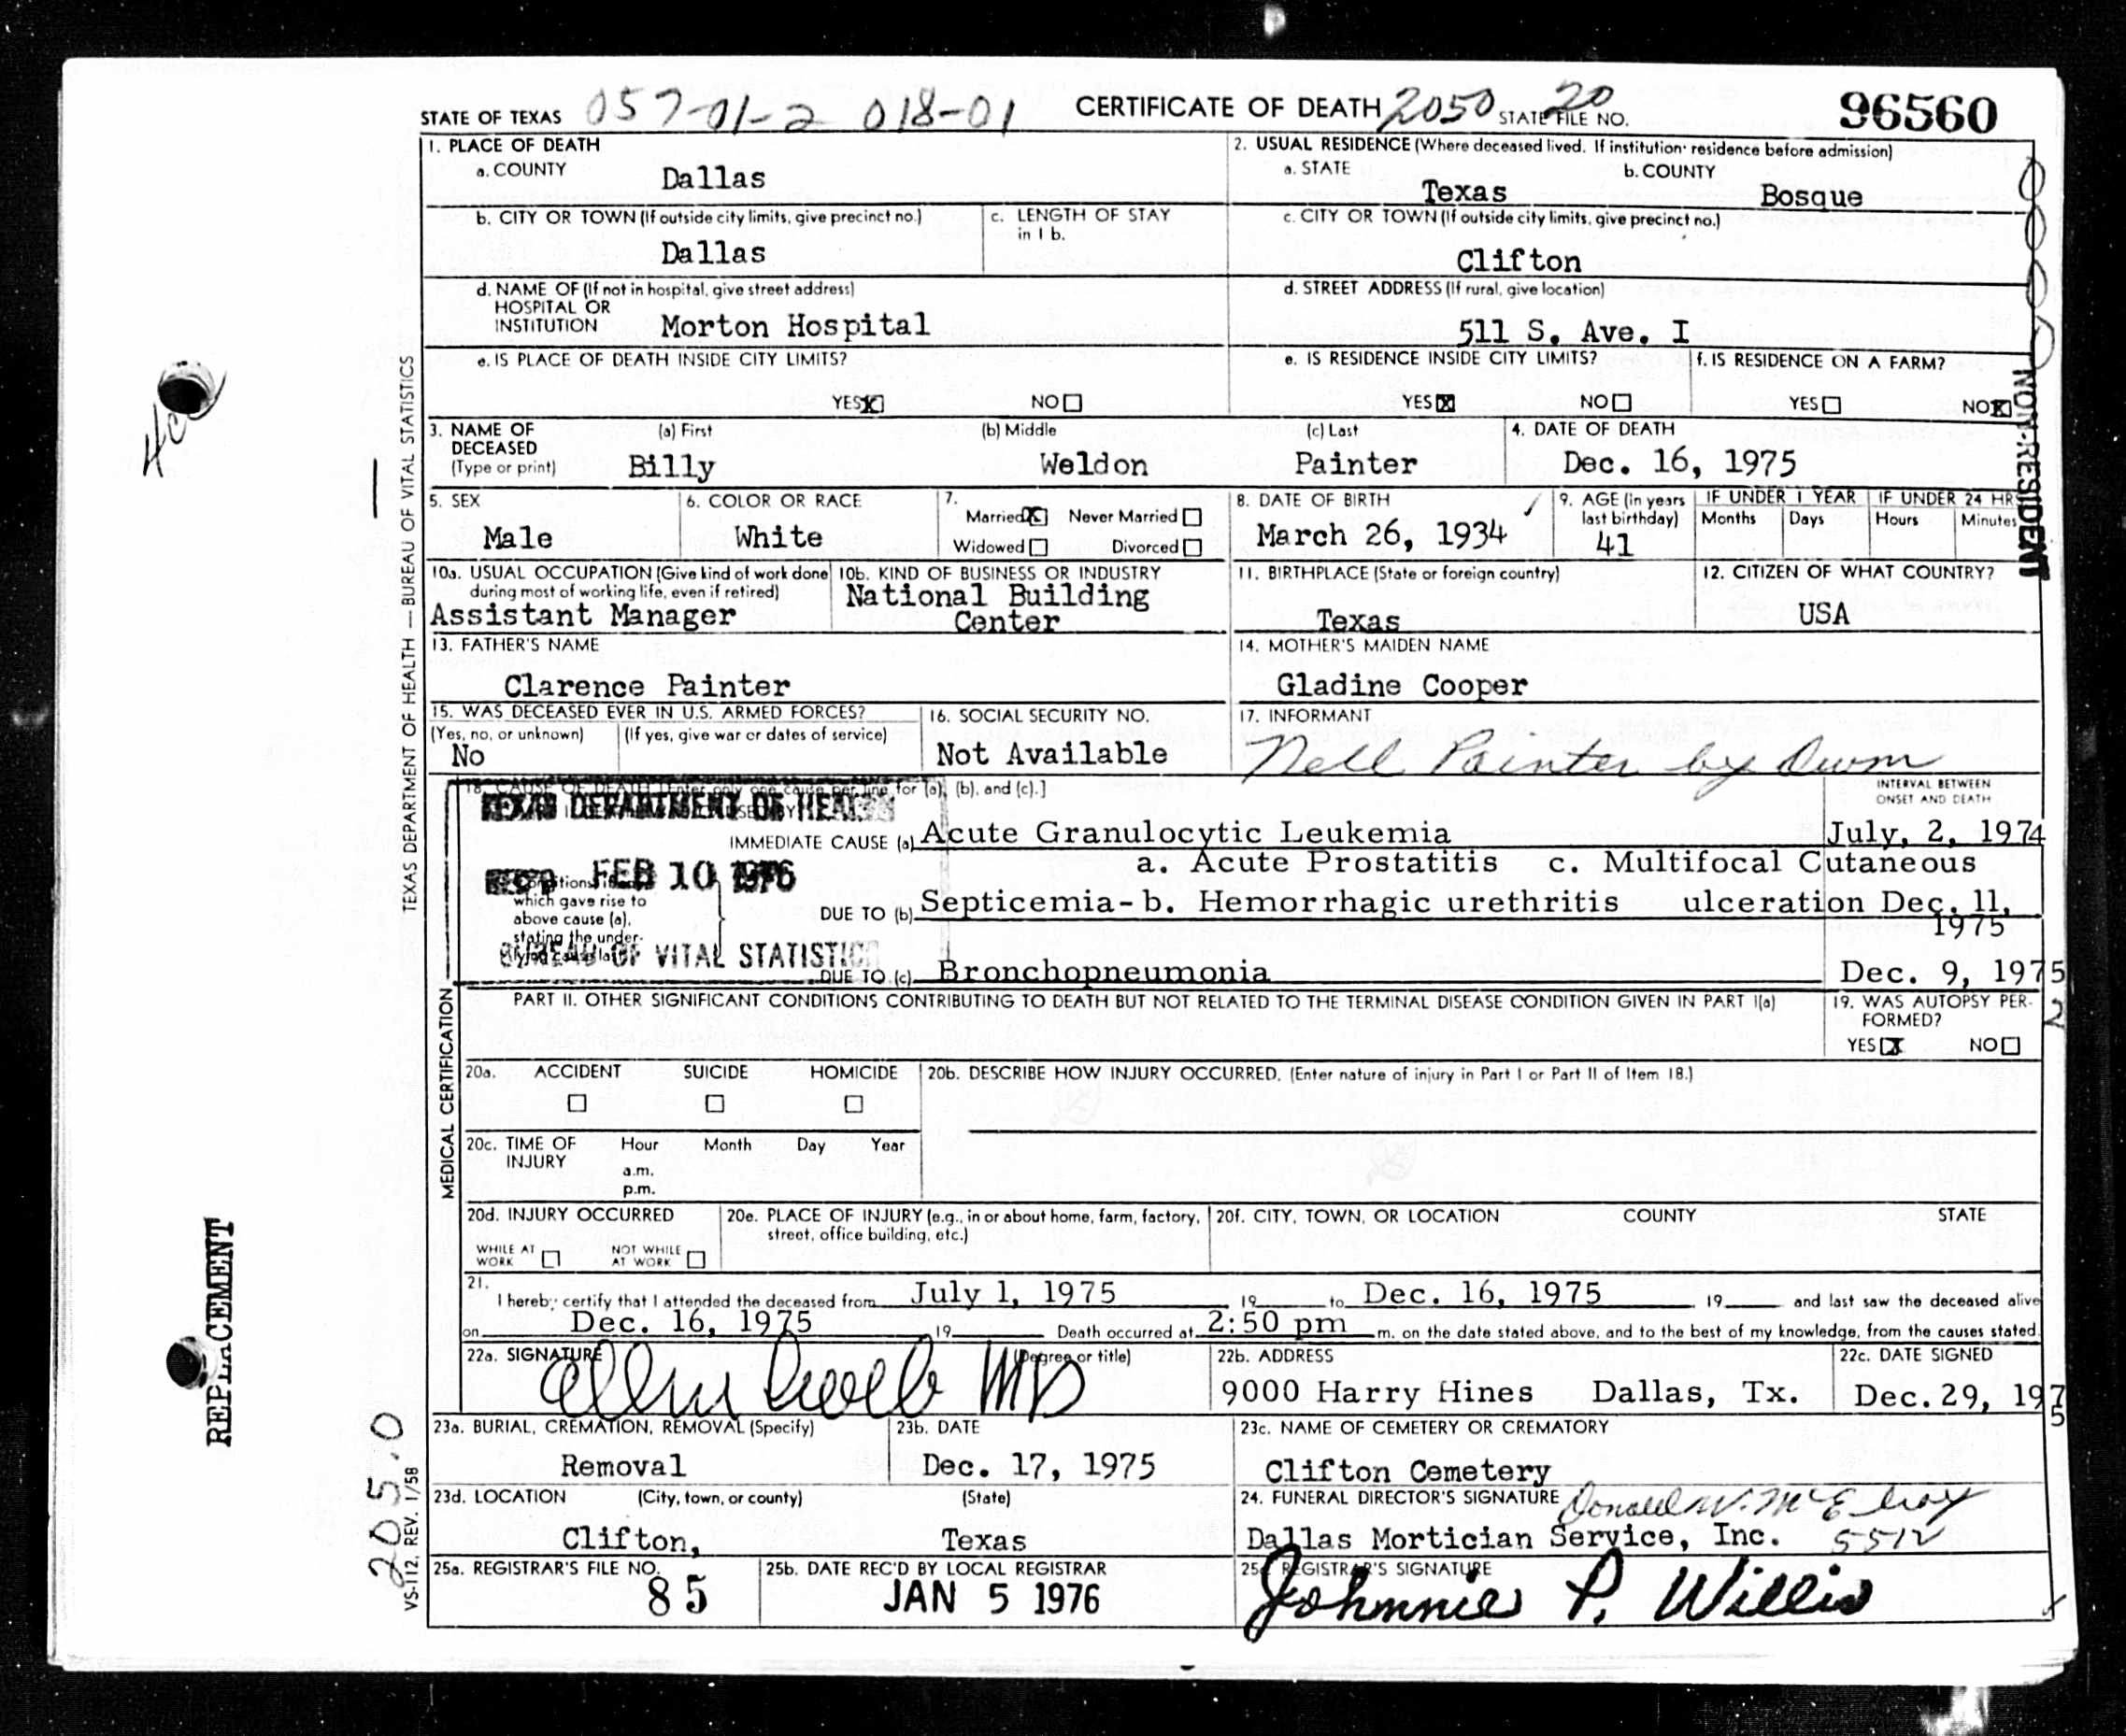 STATE OF TEXAS 057-01-2 018-01 CERTIFICATE OF DEATH 2050 STATE FILE NO. 20 96560
1. PLACE OF DEATH
a. COUNTY Dallas
2. USUAL RESIDENCE (Where deceased lived. If institution: residence before admission)
a. STATE Texas b. COUNTY Bosque
b. CITY OR TOWN (If outside city limits, give precinct no.) Dallas
c. LENGTH OF STAY in 1 b.
c. CITY OR TOWN (If outside city limits, give precinct no.) Clifton
d. NAME OF (If not in hospital, give street address)
HOSPITAL OR
INSTITUTION Morton Hospital
d. STREET ADDRESS (If rural, give location)
511 S. Ave. I
e. IS PLACE OF DEATH INSIDE CITY LIMITS?
YES X NO
e. IS RESIDENCE INSIDE CITY LIMITS?
YES X NO
f. IS RESIDENCE ON A FARM?
YES NO X
NON-RESIDENT
3. NAME OF DECEASED (Type or print)
(a) First Billy (b) Middle Weldon (c) Last Painter
4. DATE OF DEATH Dec. 16, 1975
5. SEX Male
6. COLOR OR RACE White
7. Married X Never Married
Widowed Divorced
8. DATE OF BIRTH March 26, 1934
9. AGE (in years last birthday) 41
IF UNDER 1 YEAR Months Days
IF UNDER 24 HRS Hours Minutes
10a. USUAL OCCUPATION (Give kind of work done during most of working life, even if retired)
Assistant Manager
10b. KIND OF BUSINESS OR INDUSTRY
National Building
Center
11. BIRTHPLACE (State or foreign country) Texas
12. CITIZEN OF WHAT COUNTRY? USA
13. FATHER'S NAME
Clarence Painter
14. MOTHER'S MAIDEN NAME
Gladine Cooper
15. WAS DECEASED EVER IN U.S. ARMED FORCES?
(Yes, no, or unknown) No (If yes, give war or dates of service)
16. SOCIAL SECURITY NO.
Not Available
17. INFORMANT
Nell Painter by
18. CAUSE OF DEATH [Enter only one cause per line for (a), (b), and (c).]
INTERVAL BETWEEN ONSET AND DEATH
TEXAS DEPARTMENT OF HEALTH
REC'D FEB 10 1976
BUREAU OF VITAL STATISTICS
IMMEDIATE CAUSE (a) Acute Granulocytic Leukemia July, 2, 1974
a. Acute Prostatitis c. Multifocal Cutaneous
which gave rise to
above cause (a),
stating the under-
DUE TO (b) Septicemia- b. Hemorrhagic urethritis ulceration Dec. 11,
1975
DUE TO (c) Bronchopneumonia Dec. 9, 1975
PART II. OTHER SIGNIFICANT CONDITIONS CONTRIBUTING TO DEATH BUT NOT RELATED TO THE TERMINAL DISEASE CONDITION GIVEN IN PART I(a)
19. WAS AUTOPSY PER-
FORMED?
YES X NO
2
20a. ACCIDENT SUICIDE HOMICIDE
20b. DESCRIBE HOW INJURY OCCURRED. (Enter nature of injury in Part I or Part II of Item 18.)
20c. TIME OF INJURY Hour Month Day Year
a.m.
p.m.
20d. INJURY OCCURRED
WHILE AT WORK NOT WHILE AT WORK
20e. PLACE OF INJURY (e.g., in or about home, farm, factory, street, office building, etc.)
20f. CITY, TOWN, OR LOCATION COUNTY STATE
21.
I hereby certify that I attended the deceased from July 1, 1975 19 to Dec. 16, 1975 19 and last saw the deceased alive
on Dec. 16, 1975 19 Death occurred at 2:50 pm m. on the date stated above, and to the best of my knowledge, from the causes stated.
22a. SIGNATURE (Degree or title) MD
22b. ADDRESS
9000 Harry Hines Dallas, Tx.
22c. DATE SIGNED
Dec. 29, 1975
23a. BURIAL, CREMATION, REMOVAL (Specify)
Removal
23b. DATE
Dec. 17, 1975
23c. NAME OF CEMETERY OR CREMATORY
Clifton Cemetery
23d. LOCATION (City, town, or county) (State)
Clifton, Texas
24. FUNERAL DIRECTOR'S SIGNATURE Donald W. McElroy
Dallas Mortician Service, Inc. 5512
25a. REGISTRAR'S FILE NO.
85
25b. DATE REC'D BY LOCAL REGISTRAR
JAN 5 1976
25c. REGISTRAR'S SIGNATURE
Johnnie P. Willis
TEXAS DEPARTMENT OF HEALTH — BUREAU OF VITAL STATISTICS
MEDICAL CERTIFICATION
VS-112, REV. 1/58
205.0
REPLACEMENT